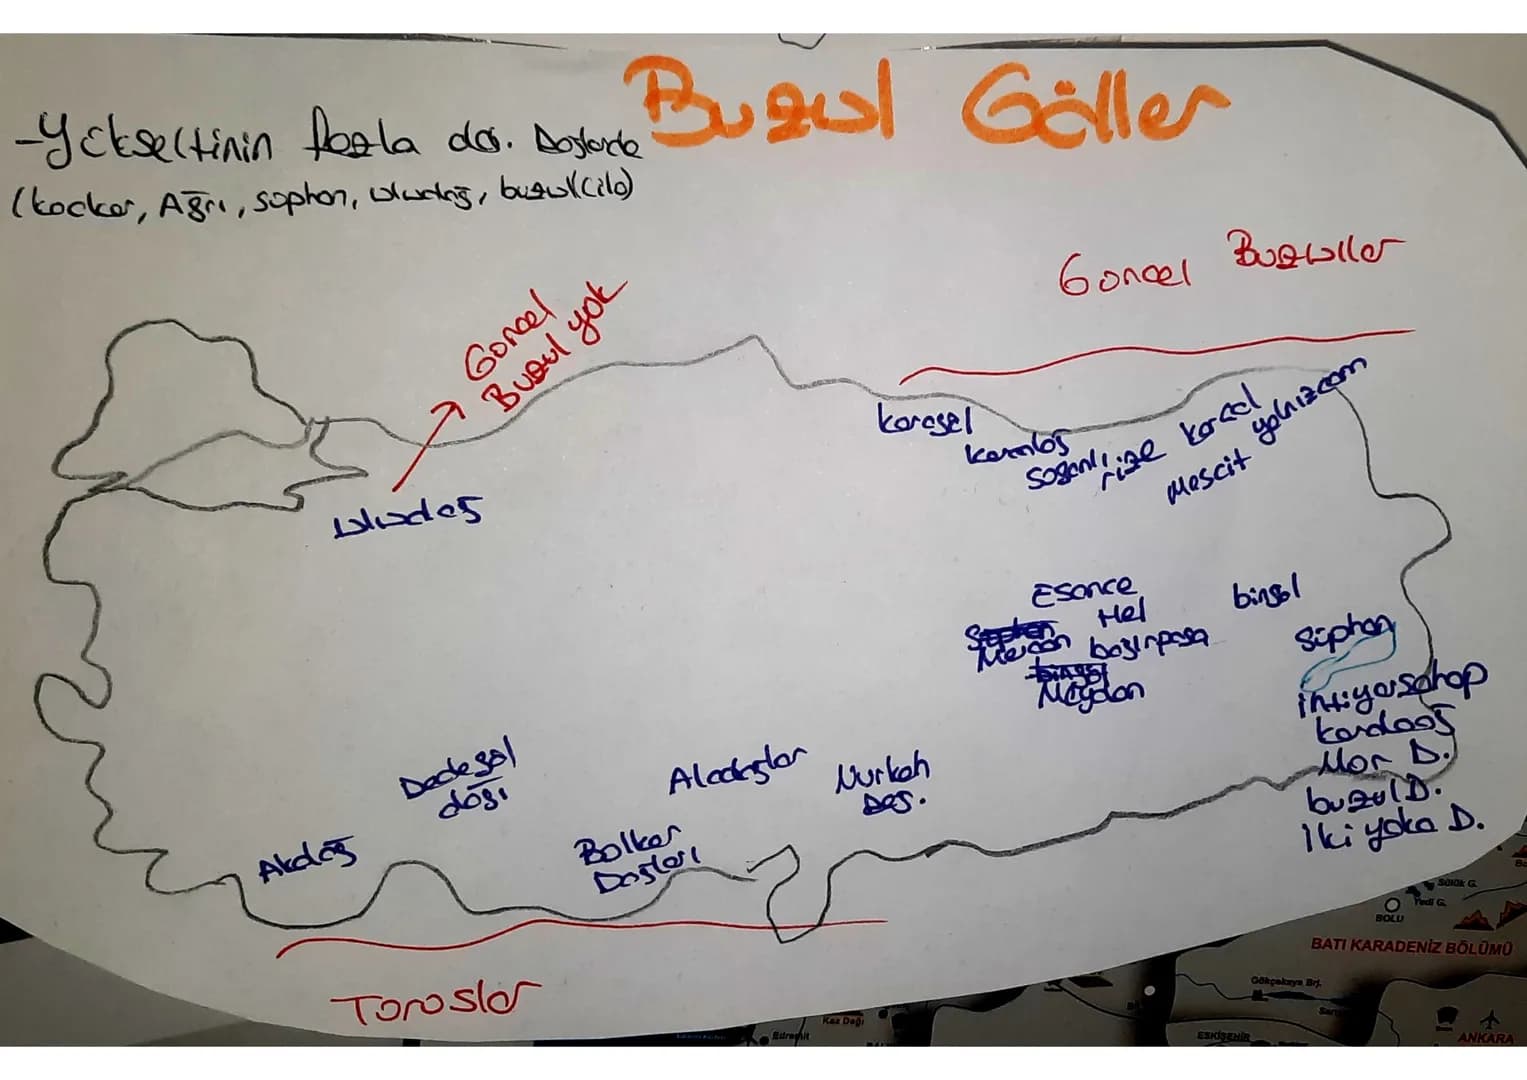 Buzul Göller
-Yükseltinin fazla ol. Dağlarda
(kaçkar, Ağrı, süphan, uludağ, buzul(cilo)
Güncel Buzullar
Güncel
Buzul yok
karagöl
karadağ
soğanlı
rize
karçal
mescit
yalnızçam
uludağ
Esence
Hel
bingöl
Mercan
bağırpaşa
Süphan
Meydan
ihtiyarşahap
kavuşşahap
Mor D.
buzul D.
iki yaka D.
Dedegöl
dağı
Aladağlar
Nurhak
Dağ.
Akdağ
Bolkar
Dağları
Toroslar
Sülük G.
Yedi G.
BOLU
BATI KARADENİZ BÖLÜMÜ
Gökçekaya Brj.
Kaz Dağı
Edremit
ESKİŞEHİR
ANKARA